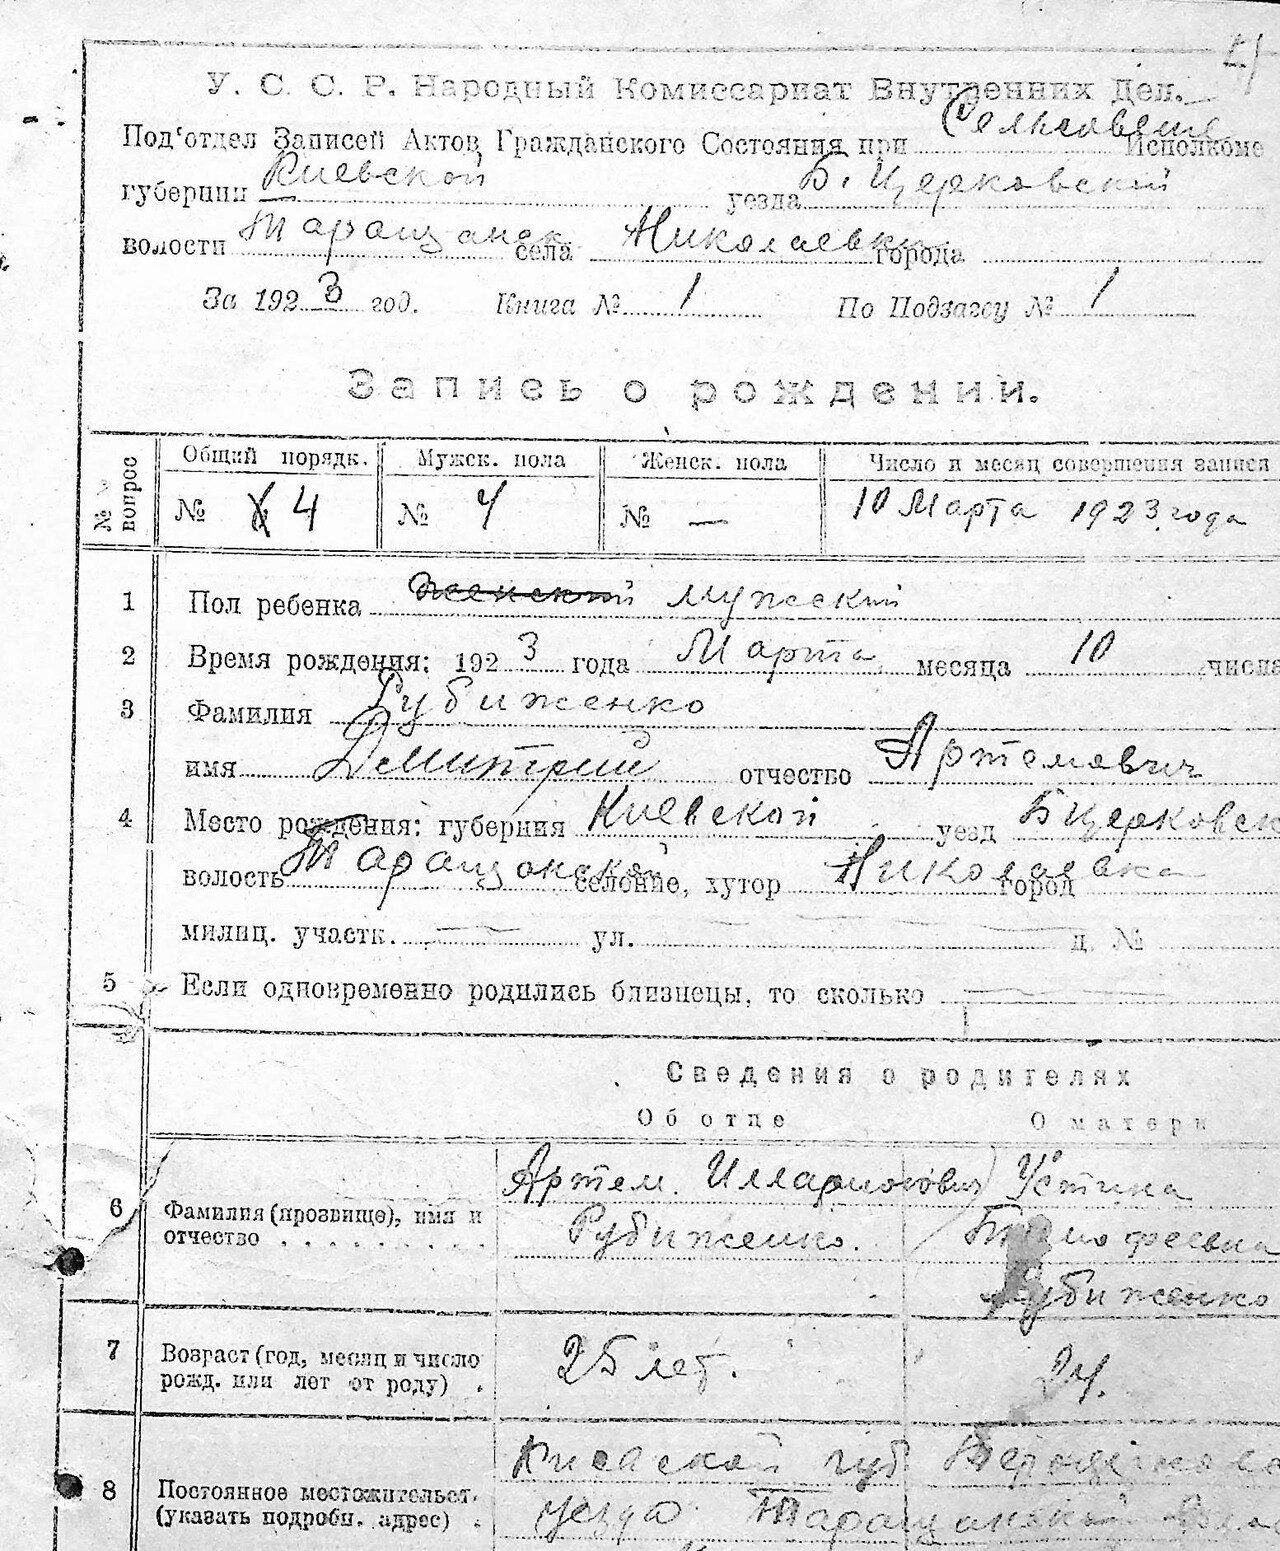 У. С. С. Р. Народный Комиссариат Внутренних Дел.
Под'отдел Записей Актов Гражданского Состояния при Сельсовете Исполкоме
губернии Киевской уезда Б. Церковской
волости Таращанск. села Николаевки города
За 1923 год. Книга № 1 По Подзагсу № 1
Запись о рождении.
№ вопрос Общий порядк. Мужск. пола Женск. пола Число и месяц совершения записи
№ 4 № 4 № — 10 Марта 1923 года
1 Пол ребенка женский мужский
2 Время рождения: 1923 года Марта месяца 10 числа
3 Фамилия Рубиженко
имя Дмитрий отчество Артемович
4 Место рождения: губерния Киевской уезд Б Церковск
волость Таращанской селение, хутор Николаевка город
милиц. участк. — ул. — д. №
5 Если одновременно родились близнецы, то сколько —
Сведения о родителях
Об отце О матери
6 Фамилия (прозвище), имя и отчество Артем Илларионович Рубиженко. Устина Тимофеевна Рубиженко
7 Возраст (год, месяц и число рожд. или лет от роду) 25 лет. 24.
8 Постоянное местожительст. (указать подробн. адрес) Киевской губ
уезда Таращанской